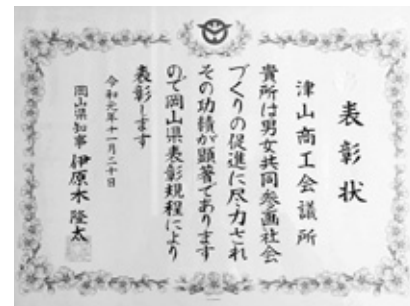 表彰状
津山商工会議所
貴所は男女共同参画社会
づくりの促進に尽力され
その功績が顕著であります
ので岡山県表彰規程により
表彰します
令和元年十一月二十日
岡山県知事 伊原木隆太